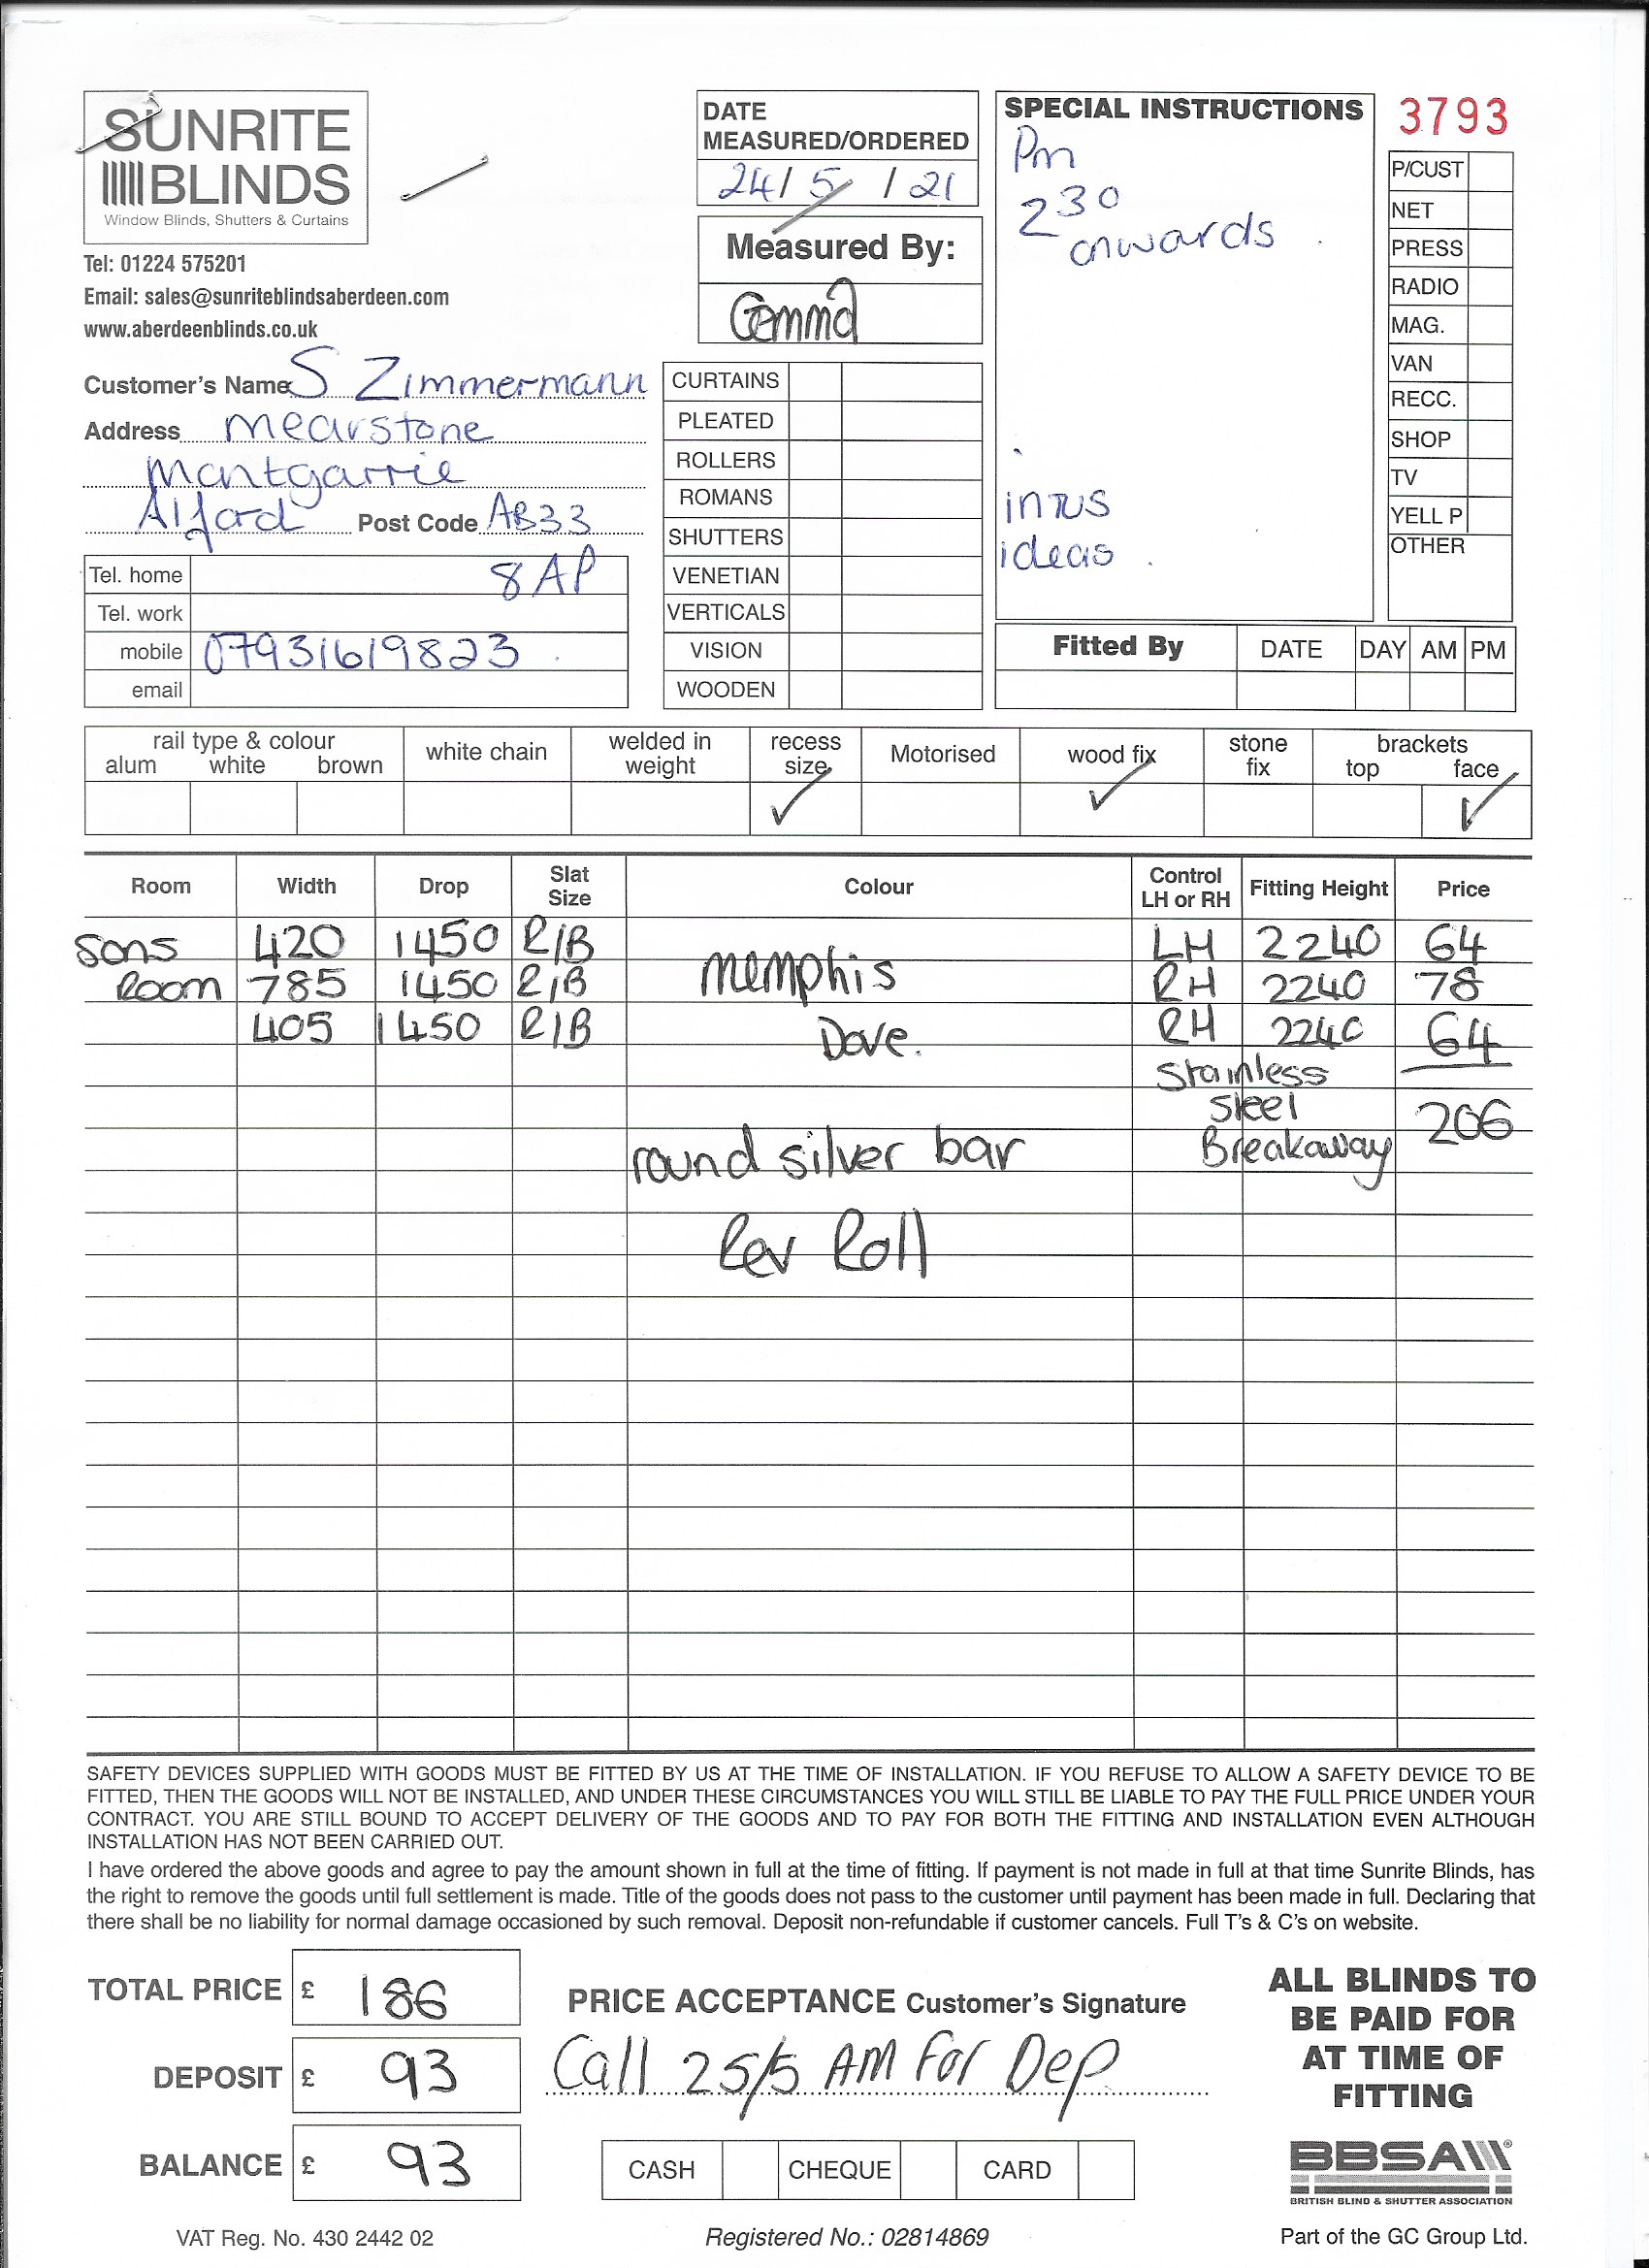 SUNRITE
BLINDS
Window Blinds, Shutters & Curtains
Tel: 01224 575201
Email: sales@sunriteblindsaberdeen.com
www.aberdeenblinds.co.uk
DATE
MEASURED/ORDERED
24/5/21
Measured By:
Gemma
SPECIAL INSTRUCTIONS
Pm
2 30
onwards
intus
ideas
3793
P/CUST
NET
PRESS
RADIO
MAG.
VAN
RECC.
SHOP
TV
YELL P
OTHER
Customer's Name S Zimmermann
Address mearstone
montgarrie
Alford Post Code AB33
8AP
Tel. home
Tel. work
mobile 07931619823
email
CURTAINS
PLEATED
ROLLERS
ROMANS
SHUTTERS
VENETIAN
VERTICALS
VISION
WOODEN
Fitted By DATE DAY AM PM
rail type & colour
alum white brown
white chain
welded in
weight
recess
size ✓
Motorised
wood fix ✓
stone
fix
brackets
top face ✓
Room Width Drop Slat Size Colour Control LH or RH Fitting Height Price
Sons 420 1450 R/B LH 2240 64
Room 785 1450 R/B memphis RH 2240 78
405 1450 R/B Dove. RH 2240 64
Stainless
Steel 206
round silver bar Breakaway
Rev Roll
SAFETY DEVICES SUPPLIED WITH GOODS MUST BE FITTED BY US AT THE TIME OF INSTALLATION. IF YOU REFUSE TO ALLOW A SAFETY DEVICE TO BE
FITTED, THEN THE GOODS WILL NOT BE INSTALLED, AND UNDER THESE CIRCUMSTANCES YOU WILL STILL BE LIABLE TO PAY THE FULL PRICE UNDER YOUR
CONTRACT. YOU ARE STILL BOUND TO ACCEPT DELIVERY OF THE GOODS AND TO PAY FOR BOTH THE FITTING AND INSTALLATION EVEN ALTHOUGH
INSTALLATION HAS NOT BEEN CARRIED OUT.
I have ordered the above goods and agree to pay the amount shown in full at the time of fitting. If payment is not made in full at that time Sunrite Blinds, has
the right to remove the goods until full settlement is made. Title of the goods does not pass to the customer until payment has been made in full. Declaring that
there shall be no liability for normal damage occasioned by such removal. Deposit non-refundable if customer cancels. Full T's & C's on website.
TOTAL PRICE £ 186
DEPOSIT £ 93
BALANCE £ 93
PRICE ACCEPTANCE Customer's Signature
Call 25/5 AM For Dep
CASH CHEQUE CARD
ALL BLINDS TO
BE PAID FOR
AT TIME OF
FITTING
BBSA
BRITISH BLIND & SHUTTER ASSOCIATION
VAT Reg. No. 430 2442 02
Registered No.: 02814869
Part of the GC Group Ltd.